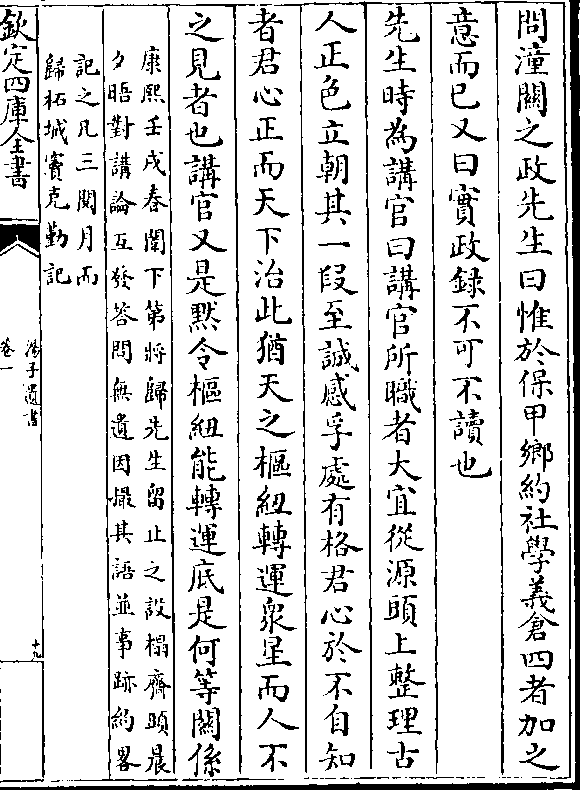 問潼關之政先生曰惟於保甲鄉約社學義倉四者加之
意而已又曰實政録不可不讀也
先生時為講官曰講官所職者大宜從源頭上整理古
人正色立朝其一段至誠感孚處有格君心於不自知
者君心正而天下治此猶天之樞紐轉運衆星而人不
之見者也講官又是黙令樞紐能轉運底是何等關係
康熙壬戌春闈下第將歸先生留止之設榻齋頭晨
夕晤對講論互發答問無遺因撮其語並事跡約畧
記之凡三閱月而
歸柘城竇克勤記
欽定四庫全書
湯子遺書
卷一
十九